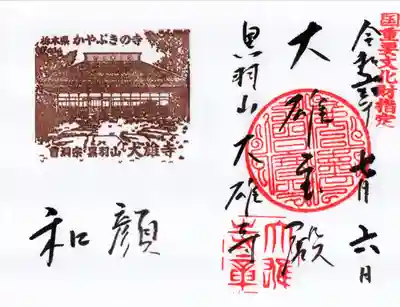 国重要文化財指定
令和三年七月六日
大雄宝殿
黒羽山大雄寺
栃木県 かやぶきの寺
曹洞宗 黒羽山 大雄寺
和顔